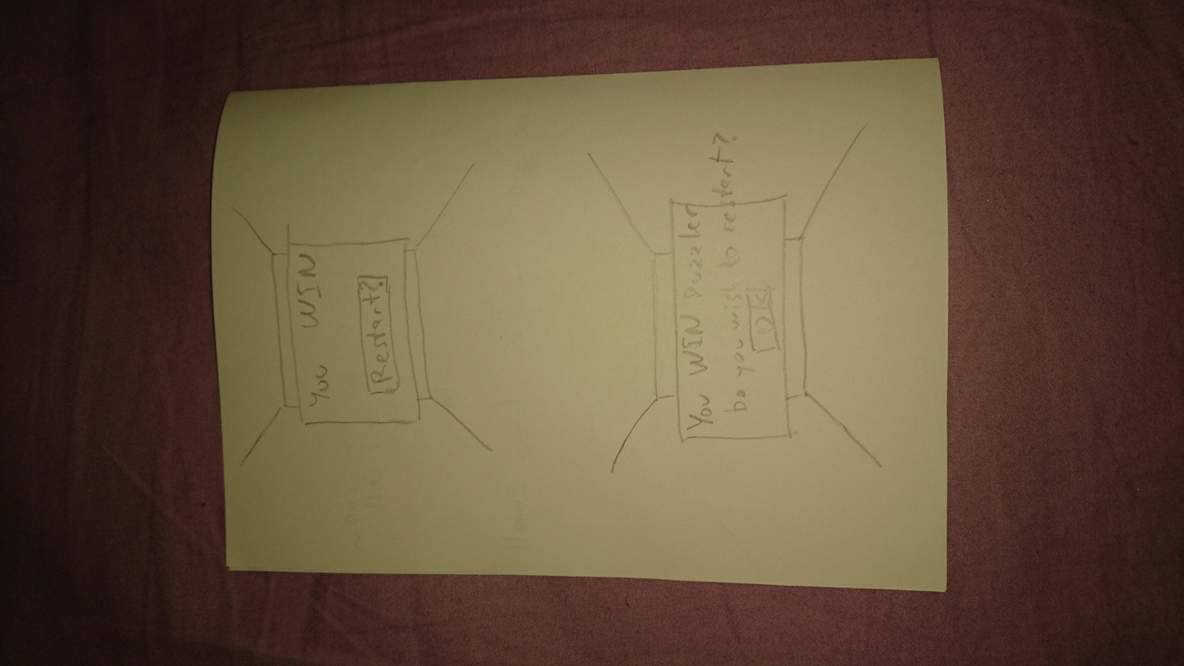 You WIN
Restart?
You WIN Puzzler
Do you wish to restart?
OK